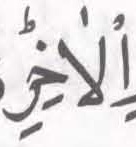 الْاٰخِرِؕ